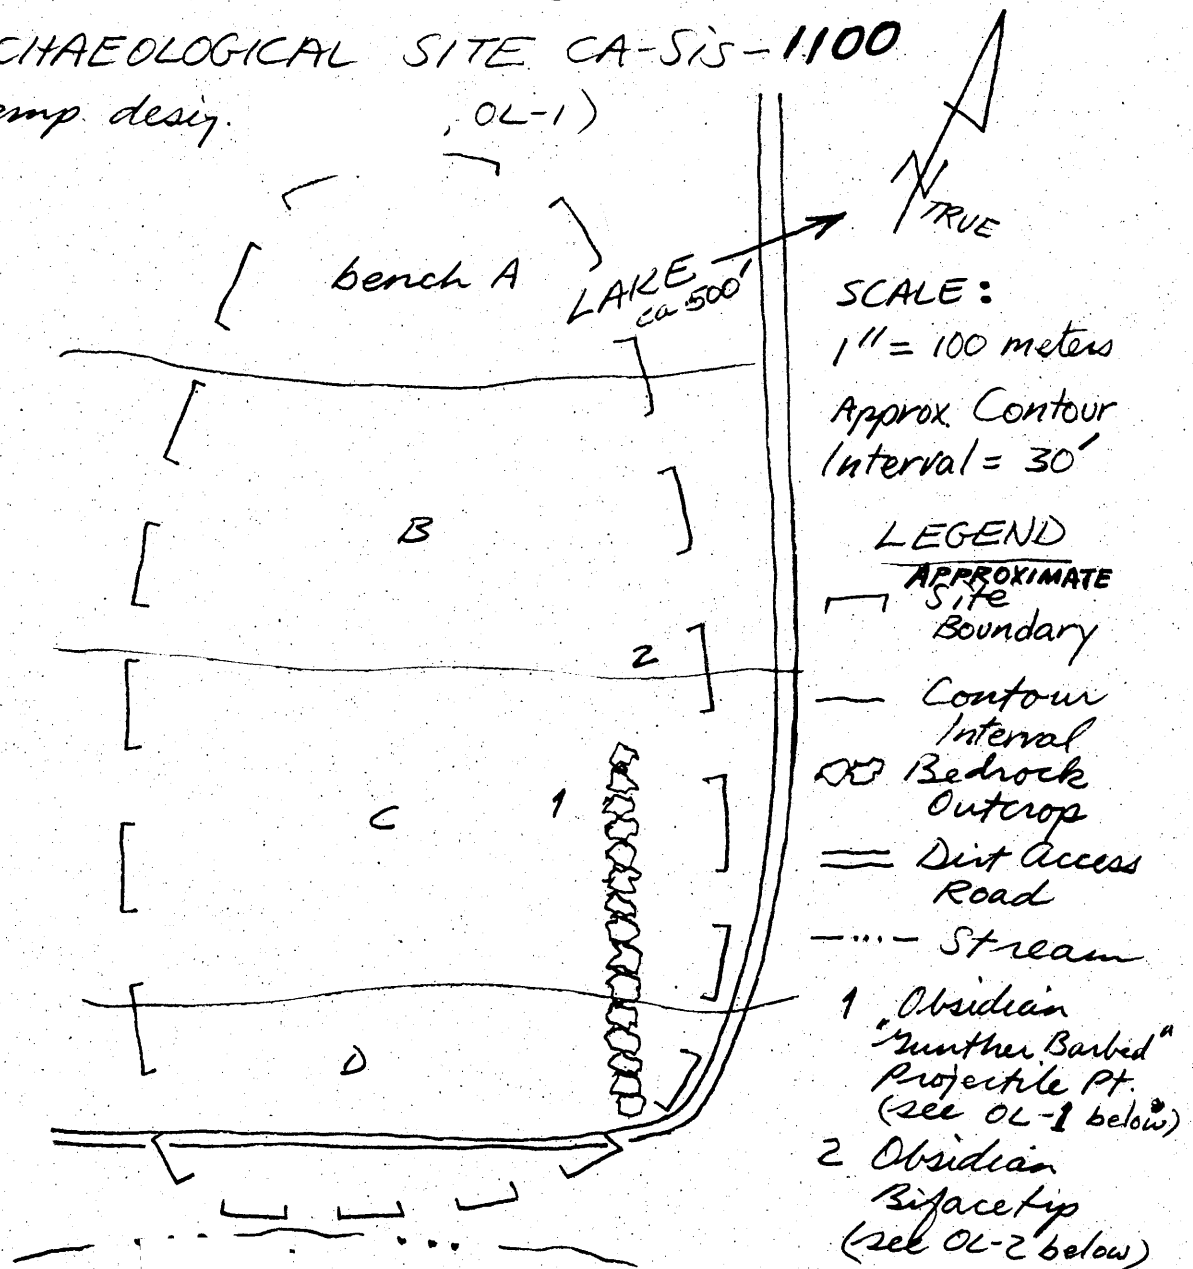 CHAEOLOGICAL SITE CA-Sis-1100
emp. desig. , OL-1)
TRUE
bench A
LAKE
ca 500'
SCALE:
1" = 100 meters
Approx. Contour
Interval = 30'
B
LEGEND
APPROXIMATE
Site
Boundary
2
Contour
Interval
Bedrock
Outcrop
1
C
Dirt Access
Road
Stream
D
1 Obsidian
"Gunther Barbed"
Projectile Pt.
(see OL-1 below)
2 Obsidian
Biface tip
(see OL-2 below)